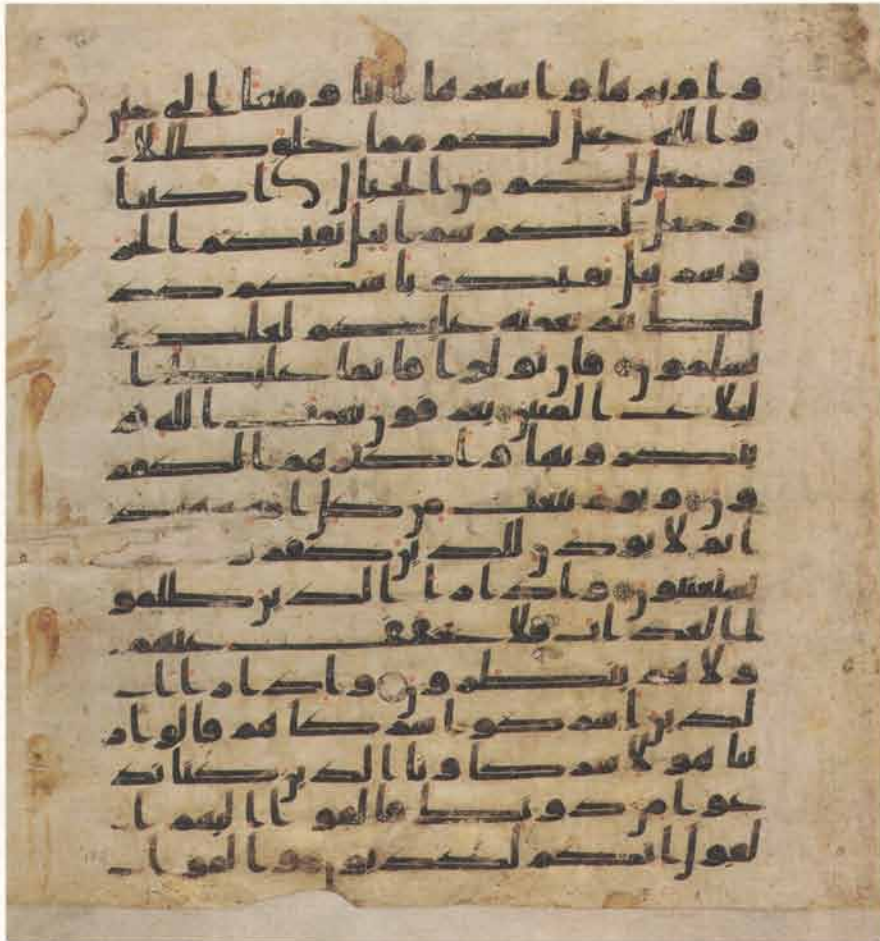 و اوبرها و اشعرها اثثا و متعا الى حين
و الله جعل لكم مما خلق ظللا
و جعل لكم من الجبال اكننا
و جعل لكم سربيل تقيكم الحر
و سربيل تقيكم باسكم كذ
لك يتم نعمته عليكم لعلكم
تسلمون فان تولوا فانما عليك ا
لبلغ المبين يعرفون نعمت الله ثم
ينكرونها و اكثرهم الكفر
ون و يوم نبعث من كل امة شهيد
ا ثم لا يوذن للذين كفروا
يستعتبون و اذا را الذين ظلمو
ا العذاب فلا يخفف عنهم
و لا هم ينظرون و اذا را ا
لذين اشركوا شركاهم قالوا ر
بنا هولا شركاونا الذين كنا ند
عوا من دونك فالقوا اليهم ا
لقول انكم لكذبون و القوا ا